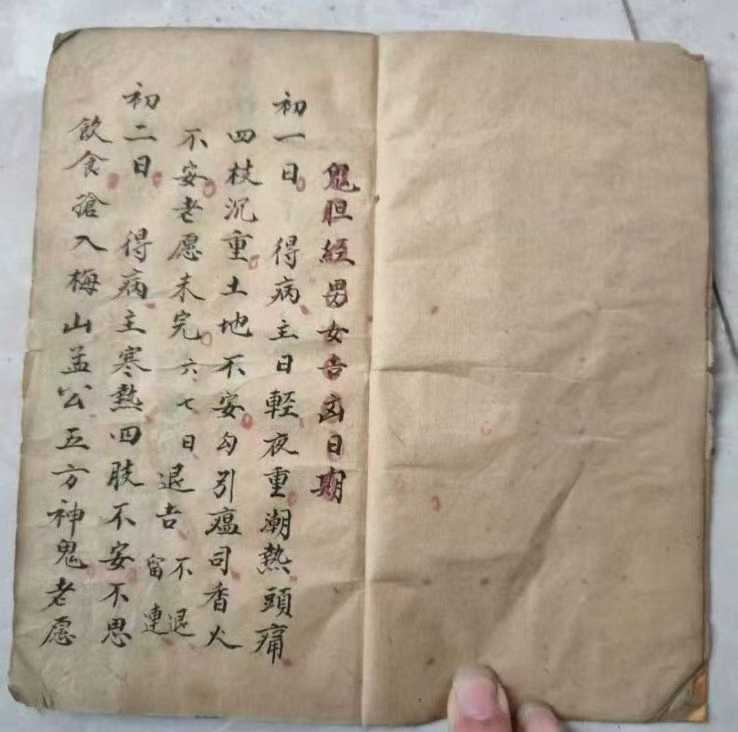 鬼胆經男女吉凶日期
初一日 得病主日輕夜重潮熱頭痛
四枝沉重土地不安勾引瘟司香火
不安老愿未完六七日退吉不退留連
初二日 得病主寒熱四肢不安不思
飲食搶入梅山孟公五方神鬼老愿